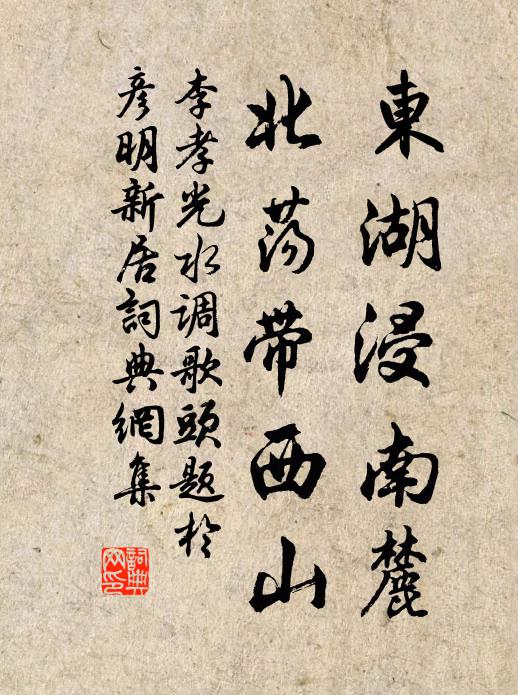 東湖浸南麓
北荡带西山
李孝光水调歌頭题於
彦明新居詞典網集
詞典网印